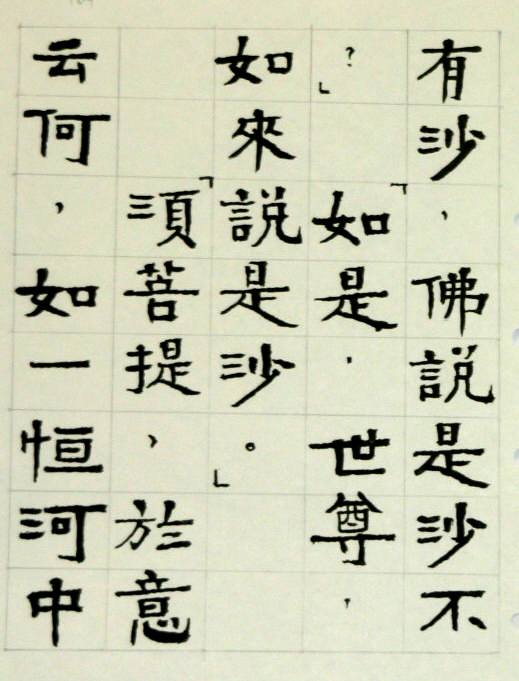 有沙，佛說是沙不
？」「如是，世尊，
如來說是沙。」
「須菩提，於意
云何，如一恒河中